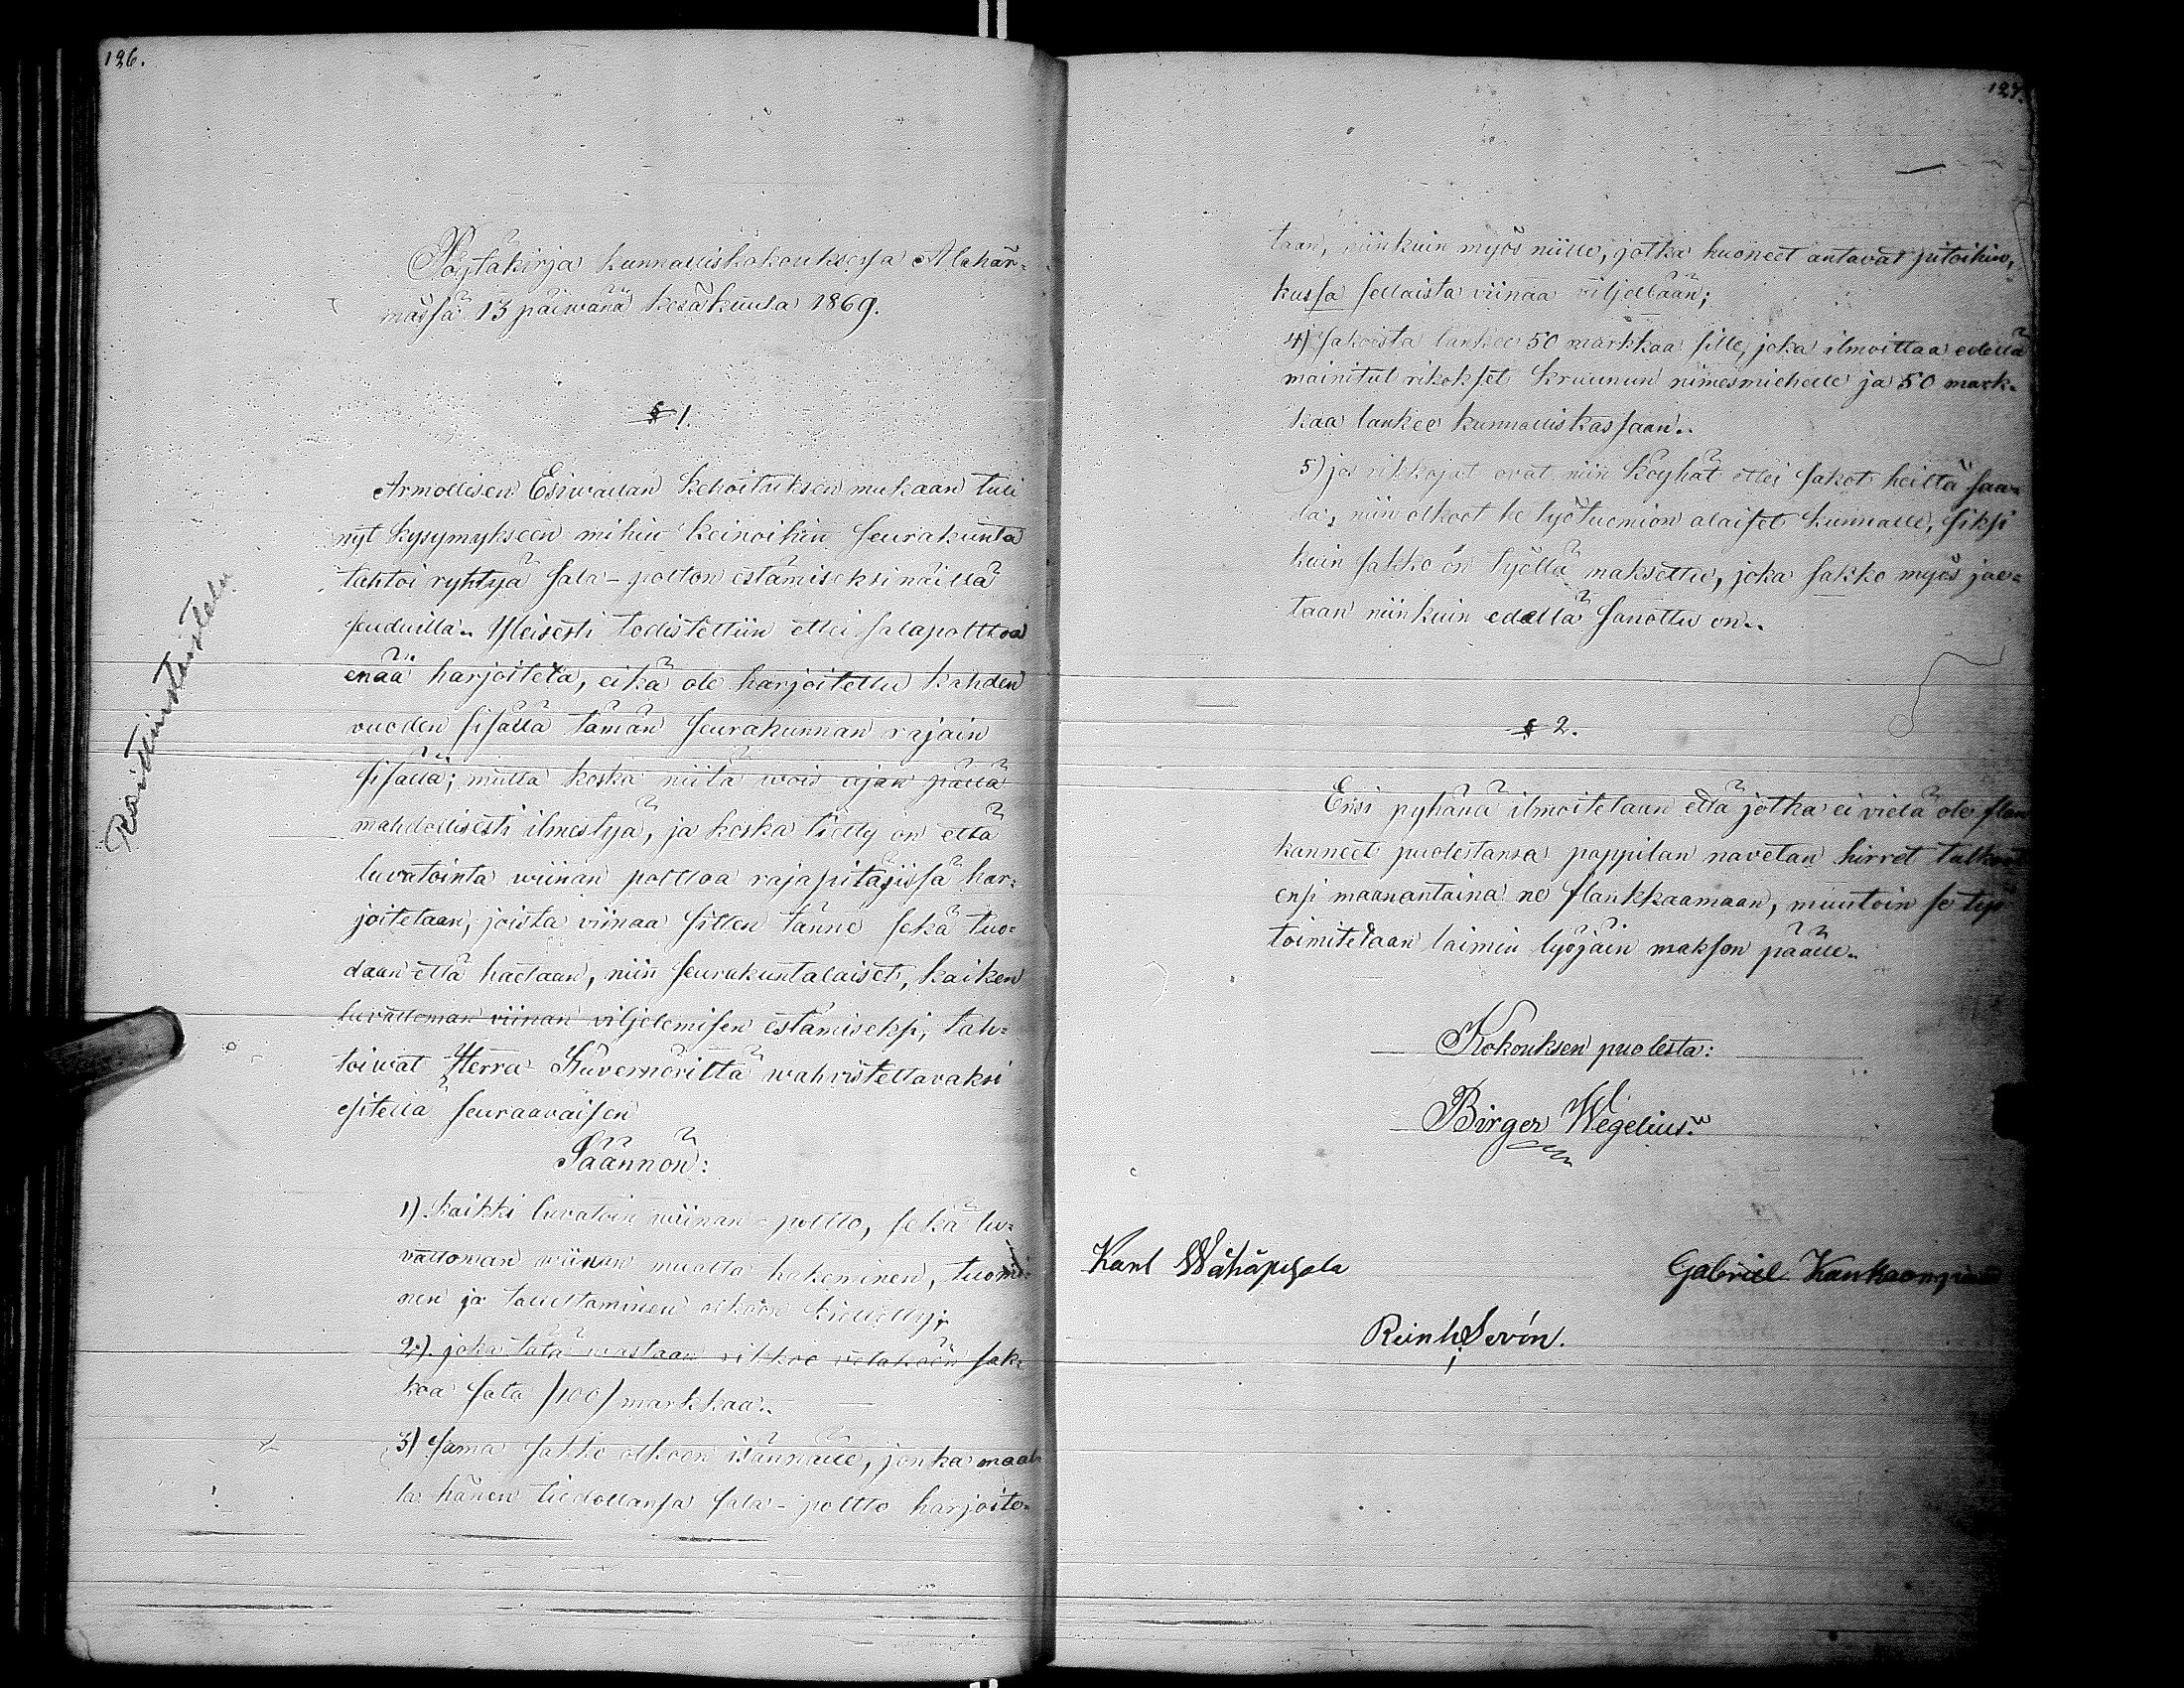 126.
Pöytäkirja kunnalliskokouksessa Alahär-
mässä 13 päiwänä kesäkuuta 1869.
§ 1.
Armollisen Esiwallan kehoituksen mukaan tuli
nyt kysymykseen mihin keinoihin seurakunta
tahtoi ryhtyä sala-polton estämiseksi näillä
seuduilla. Yleisesti todistettiin ettei salapolttoa
enää harjoiteta, eikä ole harjoitettu kahden
vuoden sisällä tämän seurakunnan rajain
sisällä; mutta koska niitä wois ajan pällä
mahdollisesti ilmestyä, ja koska tietty on että
luvatointa wiinan polttoa rajapitäjissä har-
joitetaan, joista viinaa sitten tänne sekä tuo-
daan että haetaan, niin seurakuntalaiset, kaiken
luvattoman viinan viljelemisen estämiseksi, tah-
toiwat Herra Kuvernöriltä wahvistettavaksi
esitellä seuraavaisen
Säännön:
1) Kaikki luvatoin wiinan-poltto, sekä lu-
vattoman wiinan mualta hakeminen, tuomi-
nen ja tallettaminen olkoon kielletty;
2) joka tätä wastaan rikkoo vetäköön sak-
koa sata /100/ markkaa.
3) Sama sakko olkoon isännälle, jonka maal-
la hänen tiedollansa sala-poltto harjoite-
127.
taan, niinkuin myös niille, jotka huoneet antavat pitoihin,
kussa sellaista viinaa viljellään;
4) Sakoista lankee 50 markkaa sille, joka ilmoittaa edellä
mainitut rikokset kruunun nimesmiehelle ja 50 mark-
kaa lankee kunnalliskassaan.
5) jos rikkojat ovat niin köyhät ettei sakot heiltä saa-
da, niin olkoot he työtuomion alaiset kunnalle, siksi
kuin sakko on työllä maksettu, joka sakko myös jae-
taan niinkuin edellä sanottu on.
§ 2.
Ensi pyhänä ilmoitetaan että jotka ei vielä ole slan
kanneet puolestansa pappilan navetan hirret tulkoot
ensi maanantaina ne slankkaamaan, muutoin se työ
toimitetaan laimin lyöjäin makson päälle.
Kokouksen puolesta:
Birger Wegelius.
Karl Wähäpesola
Gabriel
Reinh. Sevón.